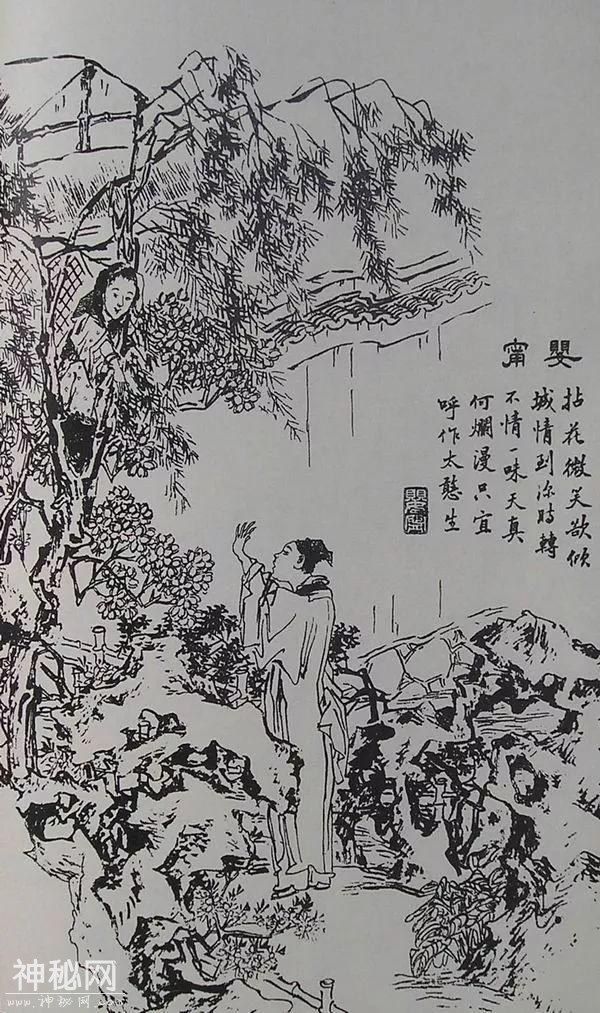 嬰甯
拈花微笑欲傾
城情到深時轉
不情一味天真
何爛漫只宜
呼作太憨生
神秘网
www.神秘网.com